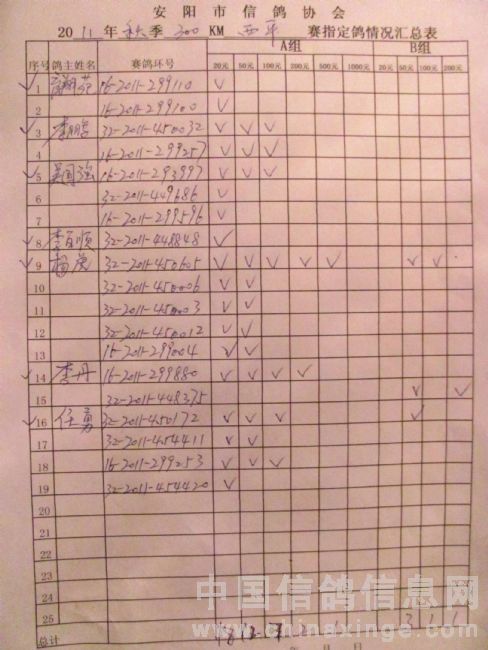 安阳市信鸽协会
2011年秋季300KM西平赛指定鸽情况汇总表
序号 鸽主姓名 赛鸽环号 A组 B组
20元 50元 100元 200元 500元 1000元 20元 50元 100元 200元
1 16-2011-299110 ✓
2 16-2011-299100 ✓
✓ 3 李鹏 32-2011-450032 ✓ ✓ ✓
4 16-2011-299257 ✓ ✓ ✓
✓ 5 吴国强 16-2011-293997 ✓ ✓ ✓
6 32-2011-449686 ✓
7 16-2011-299596 ✓
✓ 8 李自顺 32-2011-448848 ✓
✓ 9 杨 32-2011-450605 ✓ ✓ ✓ ✓ ✓ ✓ ✓
10 32-2011-450006 ✓ ✓
11 32-2011-450003 ✓ ✓
12 32-2011-450012 ✓ ✓
13 16-2011-299004 ✓ ✓
✓ 14 李丹 16-2011-299880 ✓ ✓ ✓ ✓
15 32-2011-448375 ✓ ✓
✓ 16 任勇 32-2011-450172 ✓ ✓ ✓ ✓
17 32-2011-454411 ✓ ✓
18 16-2011-299253 ✓ ✓ ✓
19 32-2011-454420 ✓
20
21
22
23
24
25
总计 18 12 7 2 1 3 1 1
年 月 日
中国信鸽信息网
www.chinaxinge.com